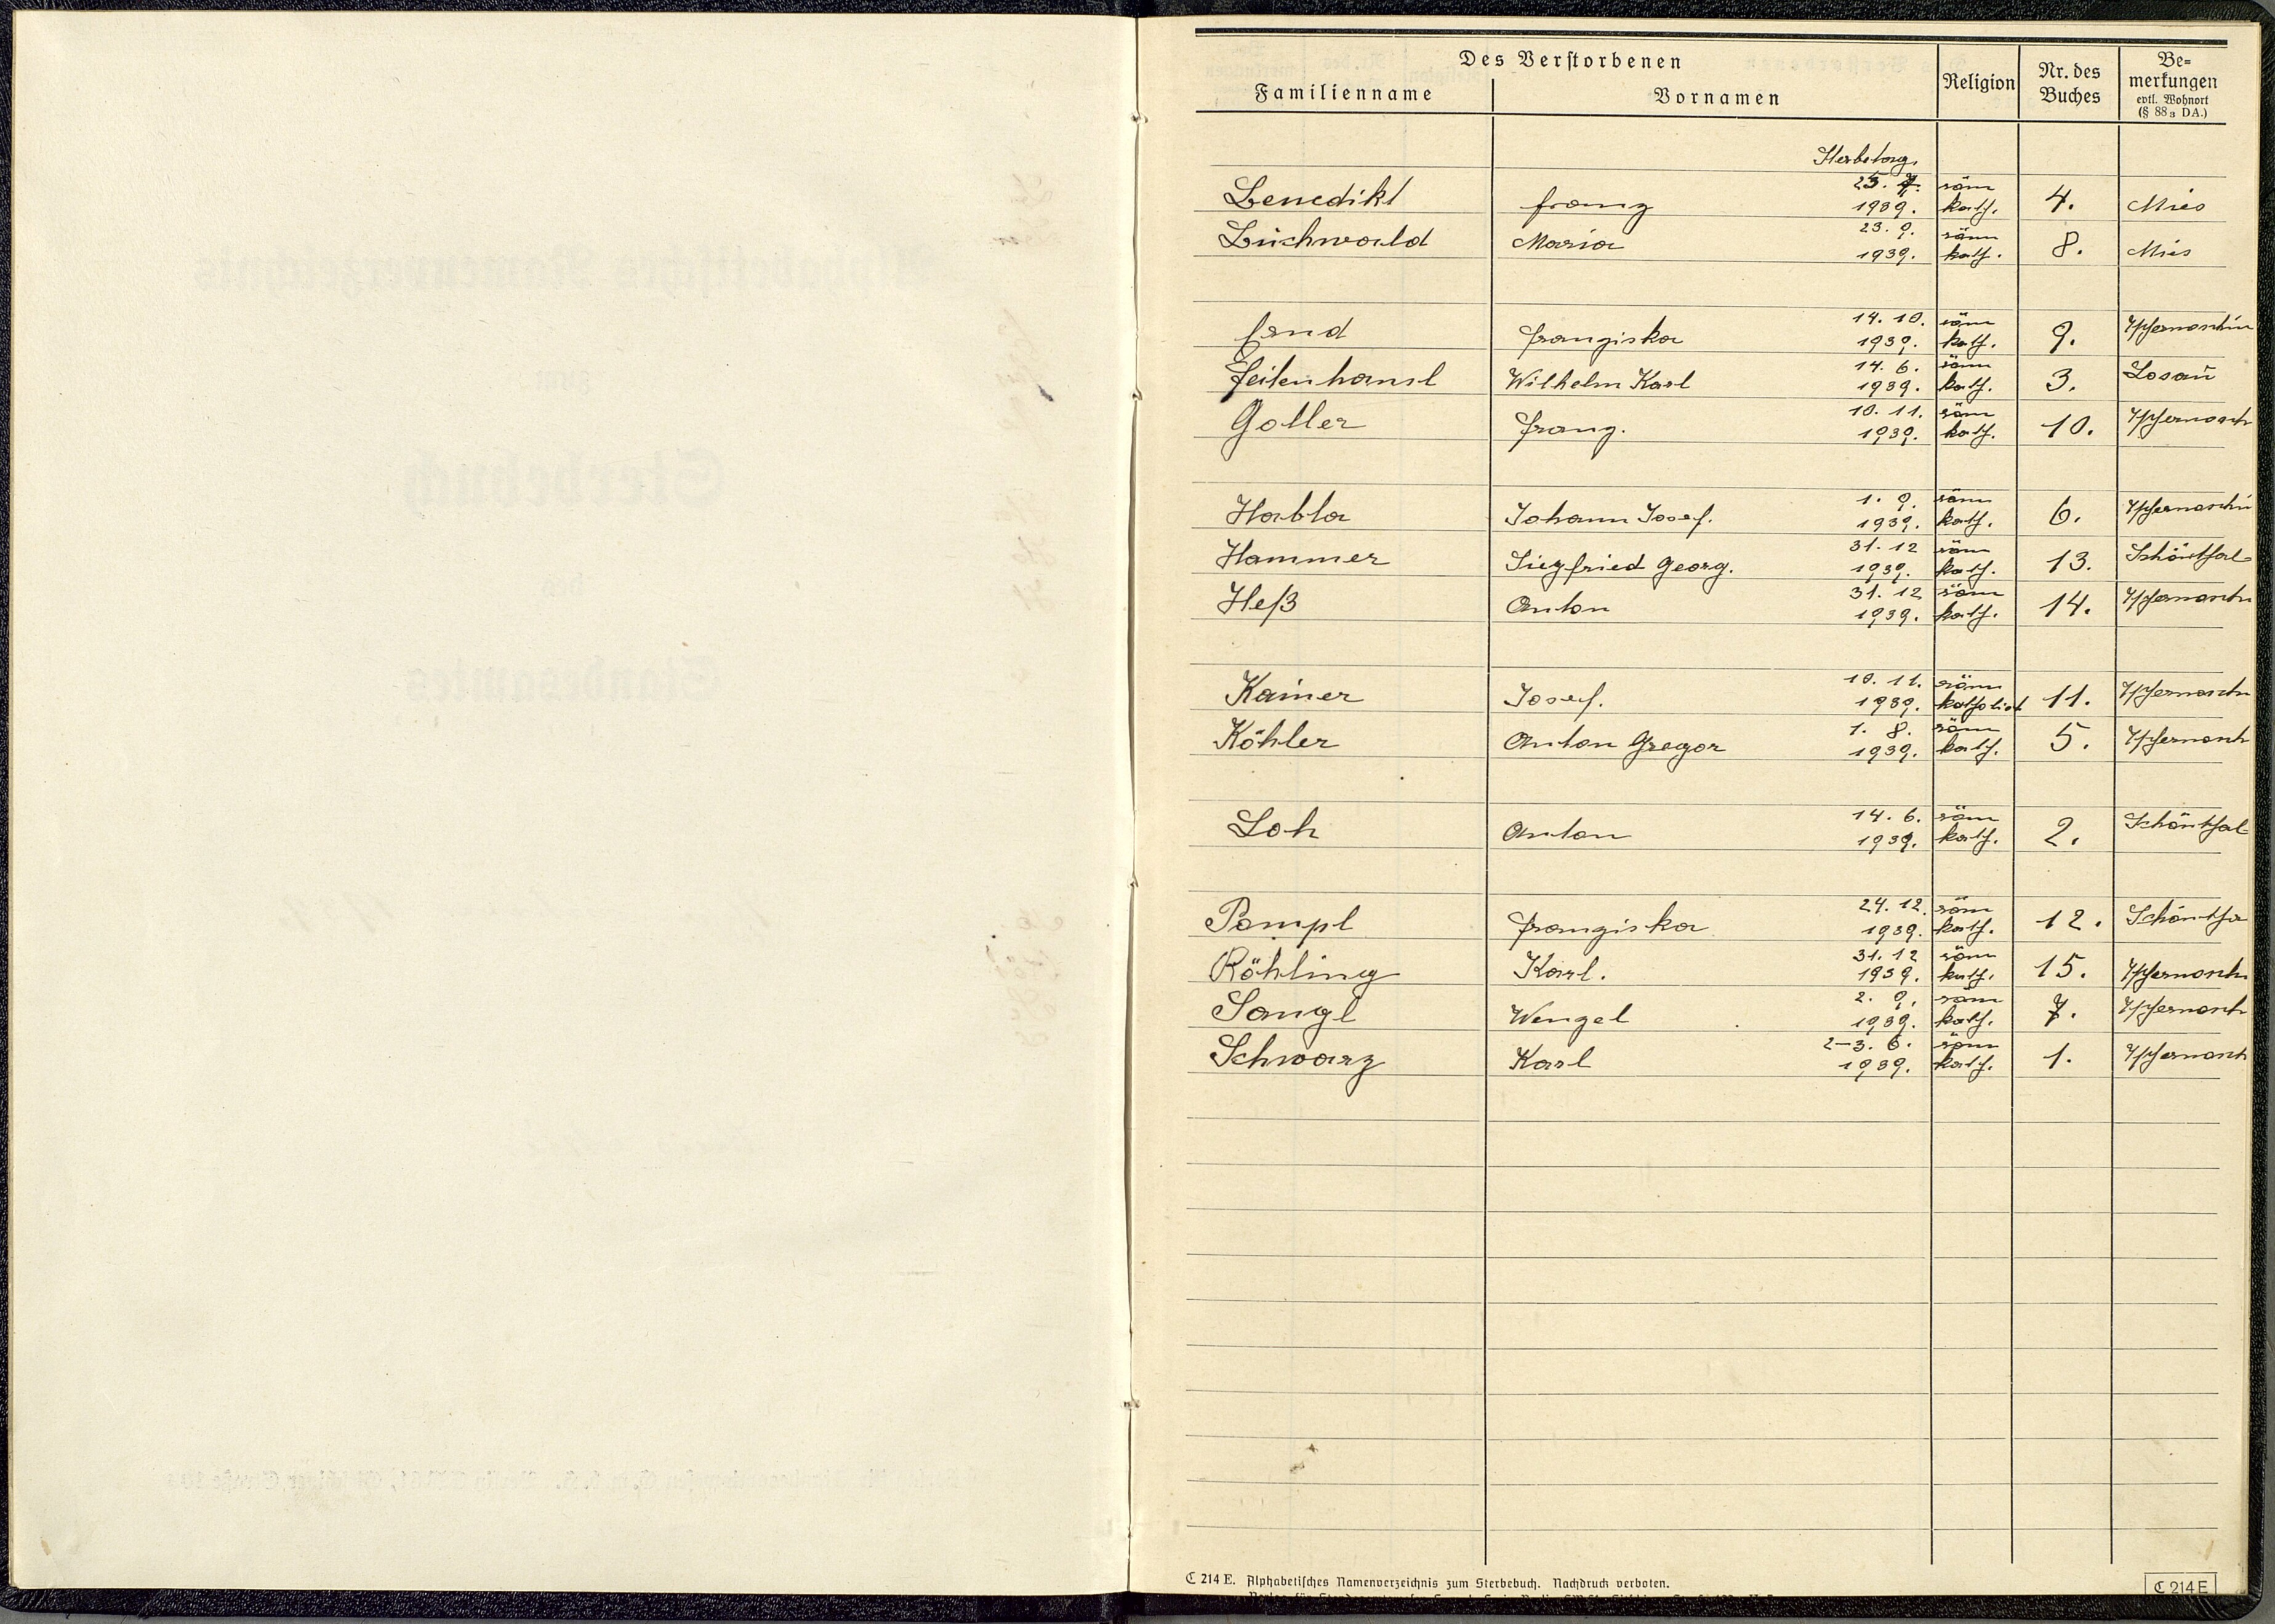 Des Verstorbenen
Familienname
Vornamen
Religion
Nr. des
Buches
Be=
merkungen
evtl. Wohnort
(§ 88 3 DA.)
Sterbetag.
Benedikt Franz 1939. röm kath. 4. Mies
Buchwald Maria 23. 9. 1939. röm kath. 8. Mies
Franziska 14. 10. 1939. röm kath. 9.
Feilenhansl Wilhelm Karl 14. 6. 1939. röm kath. 3. Losau
Goller Franz. 10. 11. 1939. röm kath. 10.
Habla Johann Josef. 1. 9. 1939. röm kath. 6.
Hammer Siegfried Georg. 31. 12 1939. röm kath. 13. Schönthal
Heß Anton 31. 12 1939. röm kath. 14.
Kainer Josef. 10. 11. 1939. röm 11.
Köhler Anton Gregor 1. 8. 1939. röm kath. 5.
Loh Anton 14. 6. 1939. röm kath. 2. Schönthal
Pampl Franziska 24. 12. 1939. röm kath. 12. Schöntha
Röhling Karl. 31. 12 1939. röm kath. 15.
Sangl Wenzel 2. 9. 1939. röm kath. 7.
Schwarz Karl 2-3. 6. 1939. röm kath. 1.
C 214 E. Alphabetisches Namenverzeichnis zum Sterbebuch. Nachdruck verboten.
C 214 E